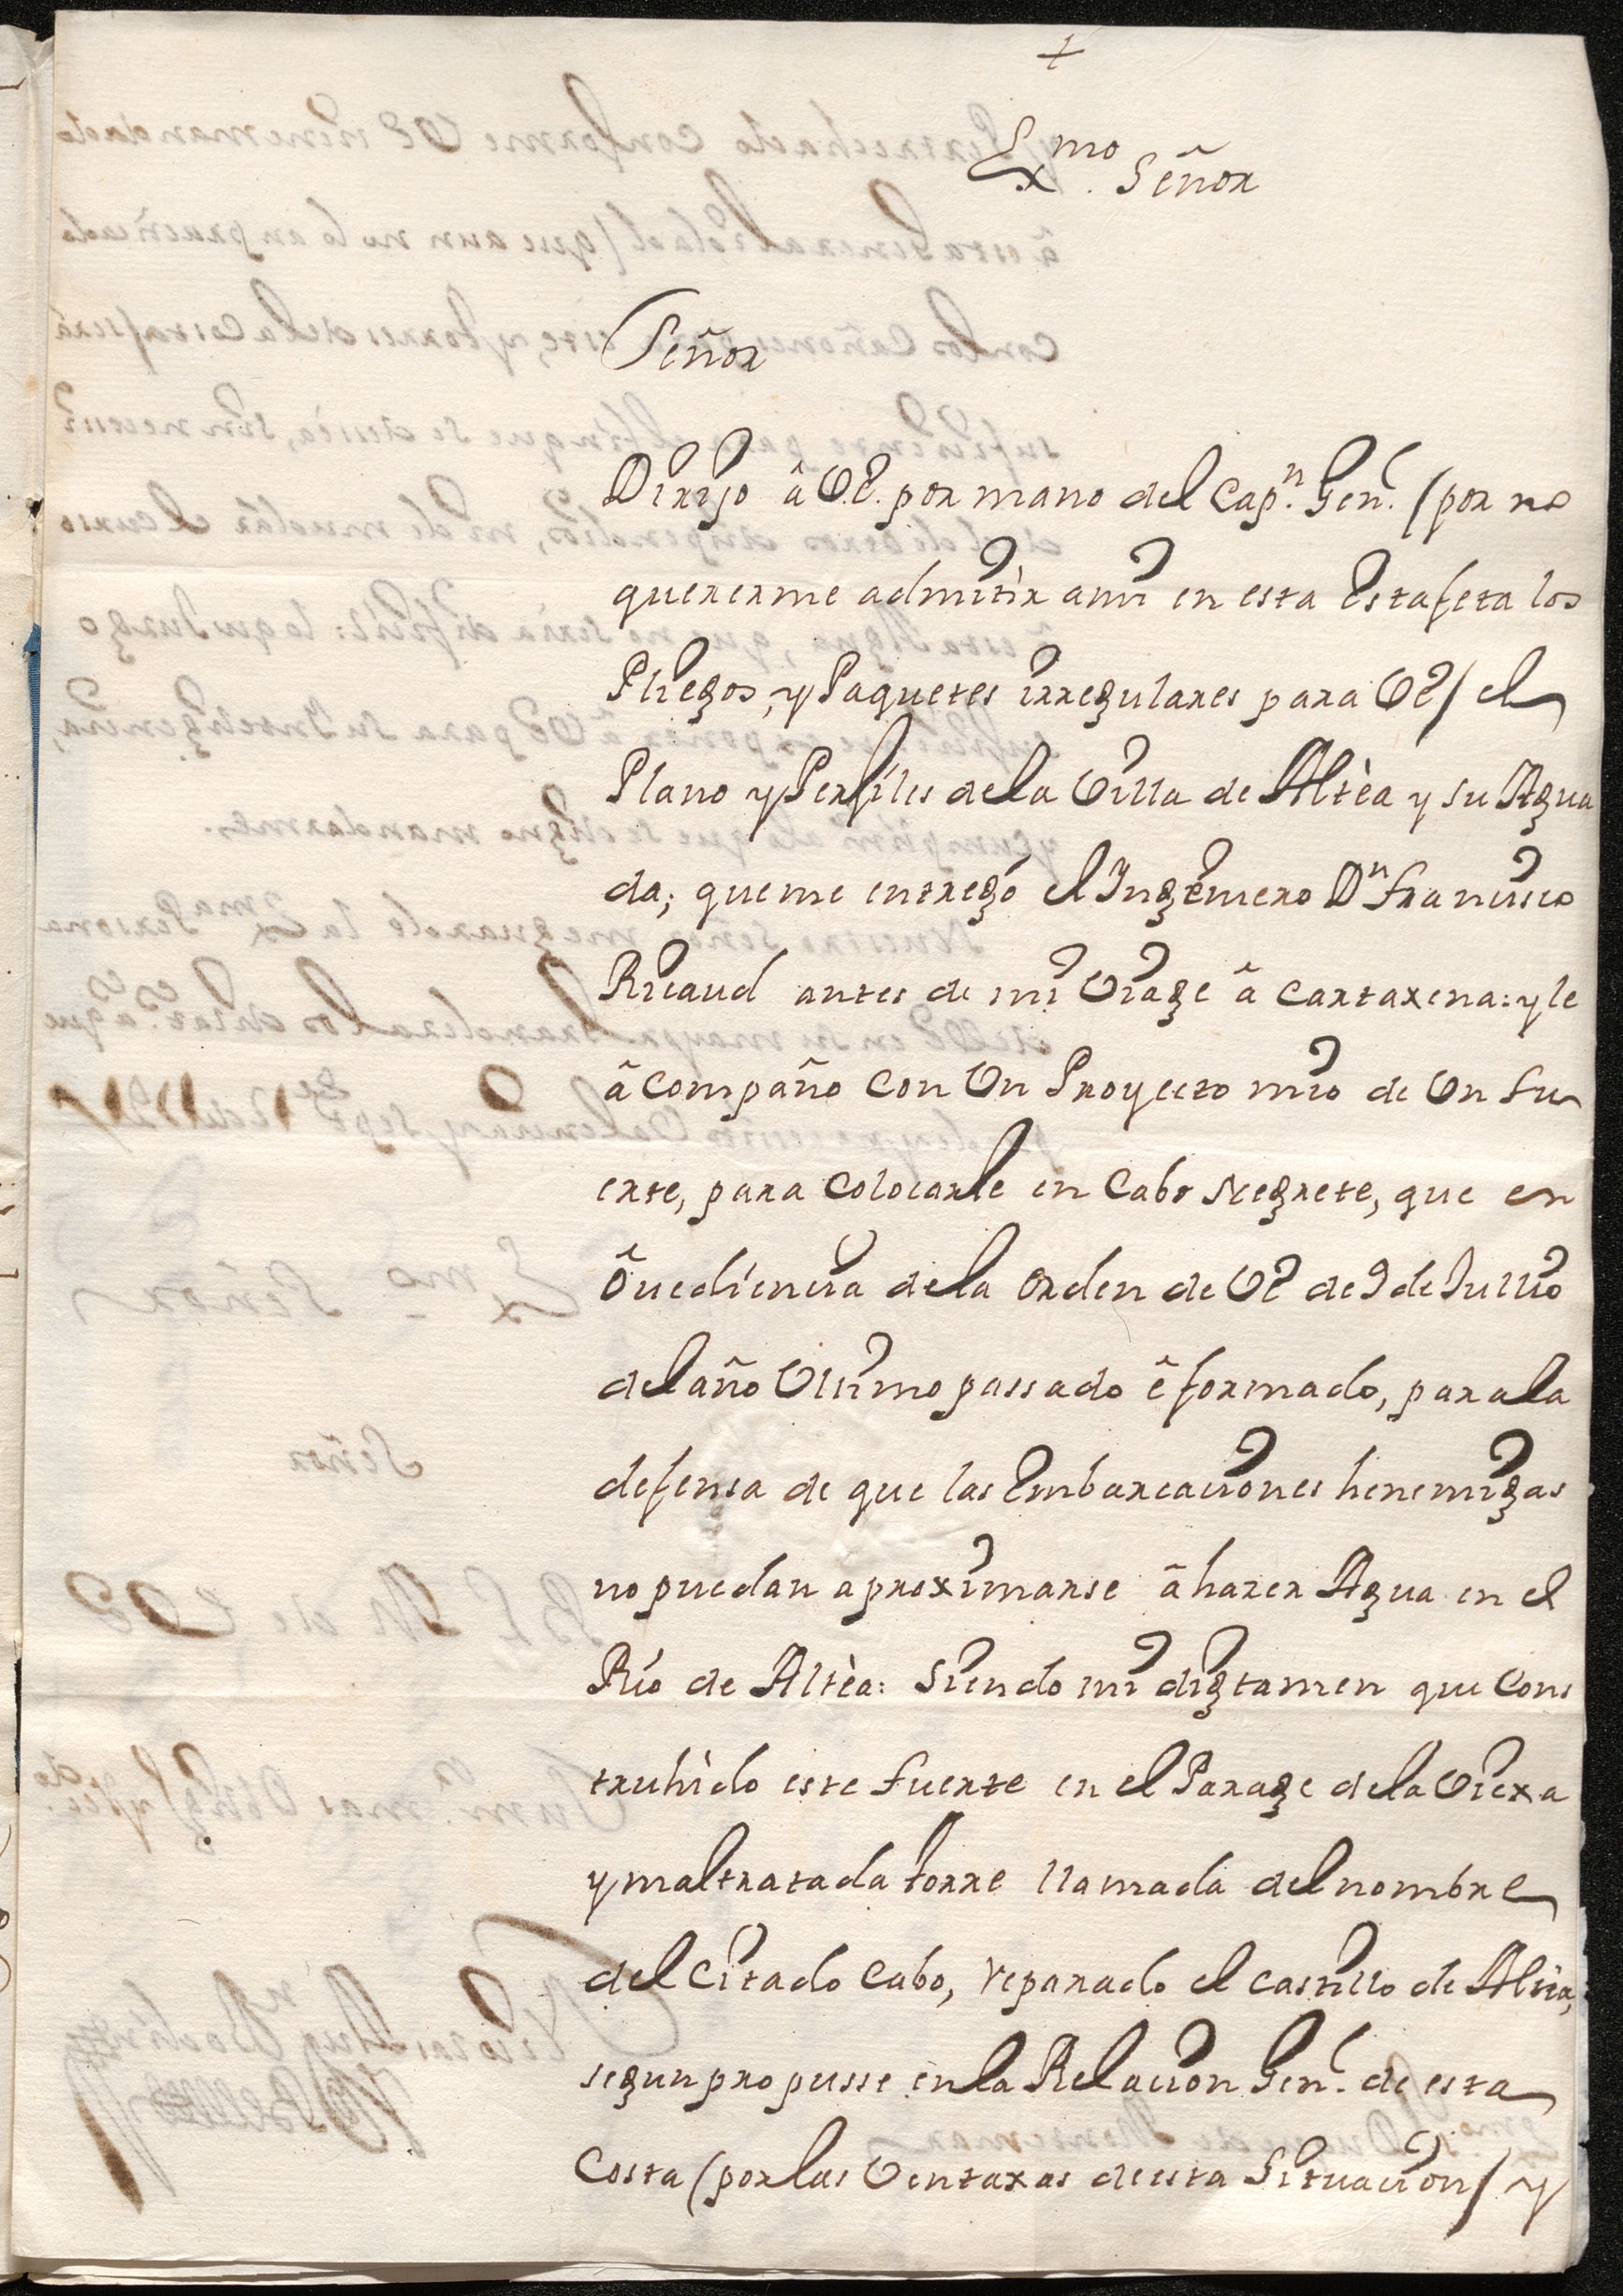 +
Exmo. Señor
Señor
Dirijo â VE. por mano del Capn. Genl. (por no
quererme admitir ami en esta Estafeta los
Pliegos, y Paquetes irregulares para VE) el
Plano y Perfiles dela Villa de Altèa y su Agua
da; queme entregó el Ingeniero Dn Francisco
Ricaud antes de mi Viage â Cartaxena: y le
âcompaño con Un Proyecto mio de Un fu
erte, para colocarle en Cabo Negrete, que en
Ôvediencia dela Orden de VE de 9 de Jullio
del año Ultimo passado ê formado, para la
defensa de que las Embarcaciones henemigas
no puedan aproximarse â hazer Agua en el
Río de Altèa: Siendo mi digtamen que Cons
truhìdo este fuerte en el Parage dela Viexa
y maltratada torre llamada del nombre
del Citado Cabo, reparado el castillo de Altèa,
segun propusse en la Relacion Genl. de esta
Costa (por las Ventaxas de esta Situacion) y